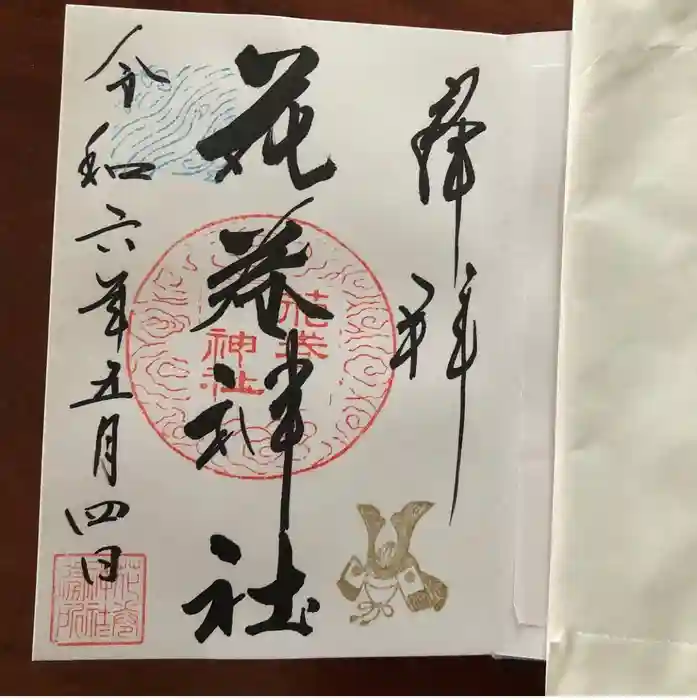 奉拝
花巻神社
花巻
神社
令和六年五月四日
花巻
神社